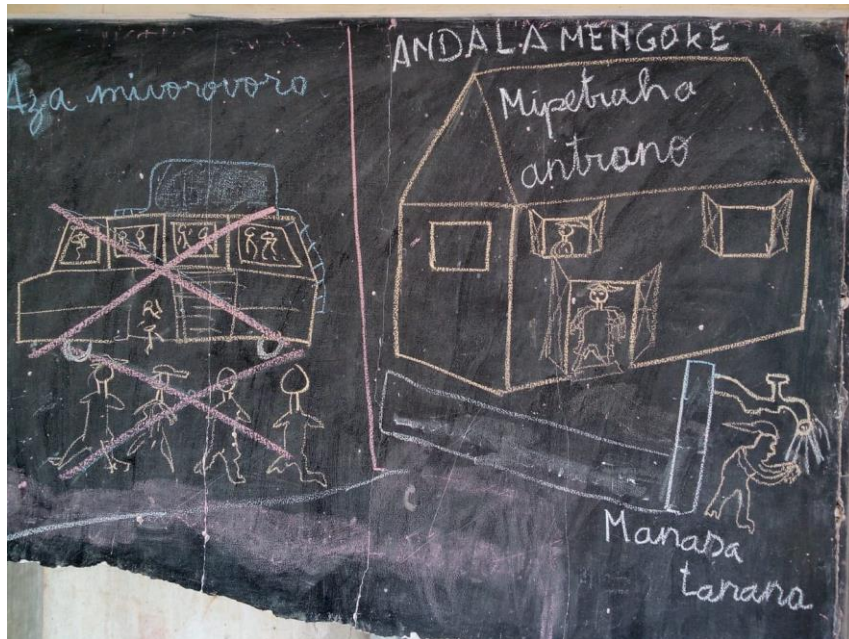 Aza mivorovoro
ANDALAMENGOKE
Mipetraha
antrano
Manasa
tanana